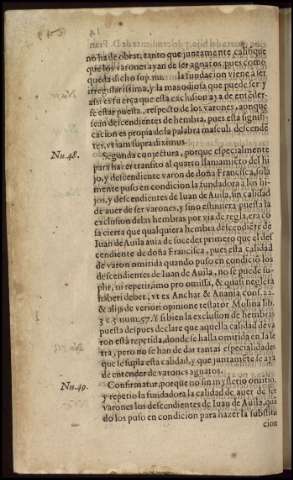 no ha de obrar, tanto que juntamente califique
que los varones ayan de ser agnatos, pues como
queda dicho sup. nu. la fundacion viene a ser
irregularissima, y la mas odiosa que puede ser y
assi es fuerça que esta exclusion aya de entender-
se estar puesta, respecto de los varones, aunque
sean descendientes de hembra, pues esta signifi-
cacion es propia de la palabra masculi descenden
tes, vt iam supra diximus.
Nu. 48.
Segunda conjectura, porque especialmente
para hazer transito al quarto llamamiẽto del hi
jo, y descendiente varon de doña Francisca, sola
mente puso en condicion la fundadora a los hi-
jos, y descendientes de Iuan de Auila, sin calidad
de auer de ser varones, y sino estuuiera puesta la
exclusion delas hembras por via de regla, era co
sa cierta que qualquiera hembra descendiẽte de
Iuan de Auila auia de suceder primero que el des
cendiente de doña Francisca, pues esta calidad
de varon omitida quando puso en condiciõ los
descendientes de Iuan de Auila, no se puede su-
plir, ni repetir, imo pro omissa, &
haberi debet, vt ex Anchar & Anania
& alijs de veriori opinione testatur Molina lib.
3. c. 5. num. 57. Y si bien la exclusion de hembras
puesta despues declare que aquella calidad de va
ron està repetida, donde se halla omitida en la le
tra, pero no se han de dar tantas especialidades
que se supla esta calidad, y que juntamẽte se aya
de entender de varones agnatos.
Nu. 49.
Confirmatur, porque no sin mysterio omitio,
y repetio la fundadora la calidad de auer de ser
varones los descendientes de Iuan de Auila, quã
do los puso en condicion para hazer la substitu
cion